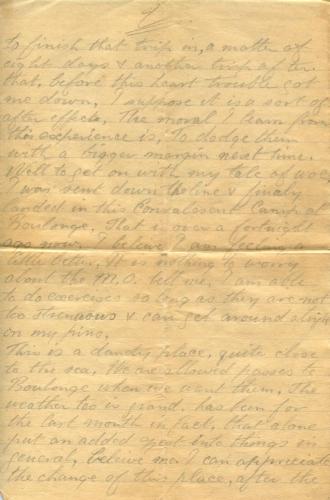 to finish that trip in, a matter of
eight days & another trip after
that, before this heart trouble got
me down. I suppose it is a sort of
after effects. The moral I learn from
this experience is, To dodge them
with a bigger margin next time.
Well to get on with my tale of woe,
I was sent down the line & finaly
landed in this Convalescent Camp at
Boulonge. That is over a fortnight
ago now, I beleive I am feeling a
little better. It is nothing to worry
about the M.O. tell me, I am able
to do exercises so long as they are not
too strenuous & can get around alright
on my pins.
This is a dandy place, quite close
to the sea. We are allowed passes to
Boulonge when we want them. The
weather too is grand, has been for
the last month in fact, that alone
put an added zest into things in
general, beleive me I can appreciate
the change of this place, after the